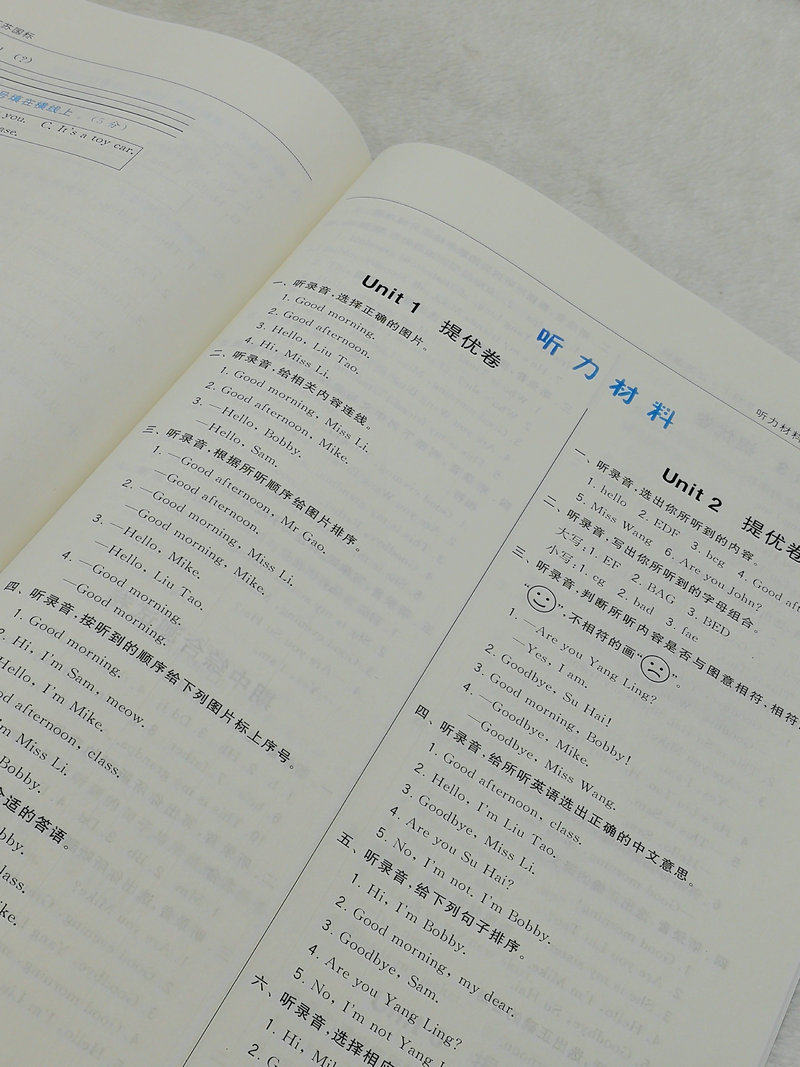 苏国标
(?)
号填在横线上。(5分)
you. C. It's a toy car.
ase.
听力材料
听力材料
Unit 1 提优卷
一、听录音,选择正确的图片。
1. Good morning.
2. Good afternoon.
3. Hello, Liu Tao.
4. Hi, Miss Li.
二、听录音,给相关内容连线。
1. Good morning, Miss Li.
2. Good afternoon, Mike.
3. —Hello, Bobby.
—Hello, Sam.
三、听录音,根据所听顺序给图片排序。
1. —Good afternoon, Mr Gao.
—Good afternoon.
2. —Good morning, Miss Li.
—Good morning, Mike.
3. —Hello, Mike.
—Hello, Liu Tao.
4. —Good morning.
—Good morning.
四、听录音,按听到的顺序给下列图片标上序号。
1. Good morning.
2. Hi, I'm Sam, meow.
Hello, I'm Mike.
afternoon, class.
I'm Miss Li.
Bobby.
适的答语。
bby.
lass.
ke.
Unit 2 提优卷
一、听录音,选出你所听到的内容。
1. hello 2. EDF 3. bcg 4. Good
5. Miss Wang 6. Are you John?
二、听录音,写出你所听到的字母组合。
大写:1. EF 2. BAG 3. BED
小写:1. cg 2. bad 3. fae
三、听录音,判断所听内容是否与图意相符,相符
“ ”,不相符的画“ ”。
1. —Are you Yang Ling?
—Yes, I am.
2. Goodbye, Su Hai!
3. Good morning, Bobby!
4. —Goodbye, Mike.
—Goodbye, Miss Wang.
四、听录音,给所听英语选出正确的中文意思。
1. Good afternoon, class.
2. Hello, I'm Liu Tao.
3. Goodbye, Miss Li.
4. Are you Su Hai?
5. No, I'm not. I'm Bobby.
五、听录音,给下列句子排序。
1. Hi, I'm Bobby.
2. Good morning, my dear.
3. Goodbye, Sam.
4. Are you Yang Ling?
5. No, I'm not Yang Ling?
六、听录音,选择相应
1. Hi, Mi
2. G